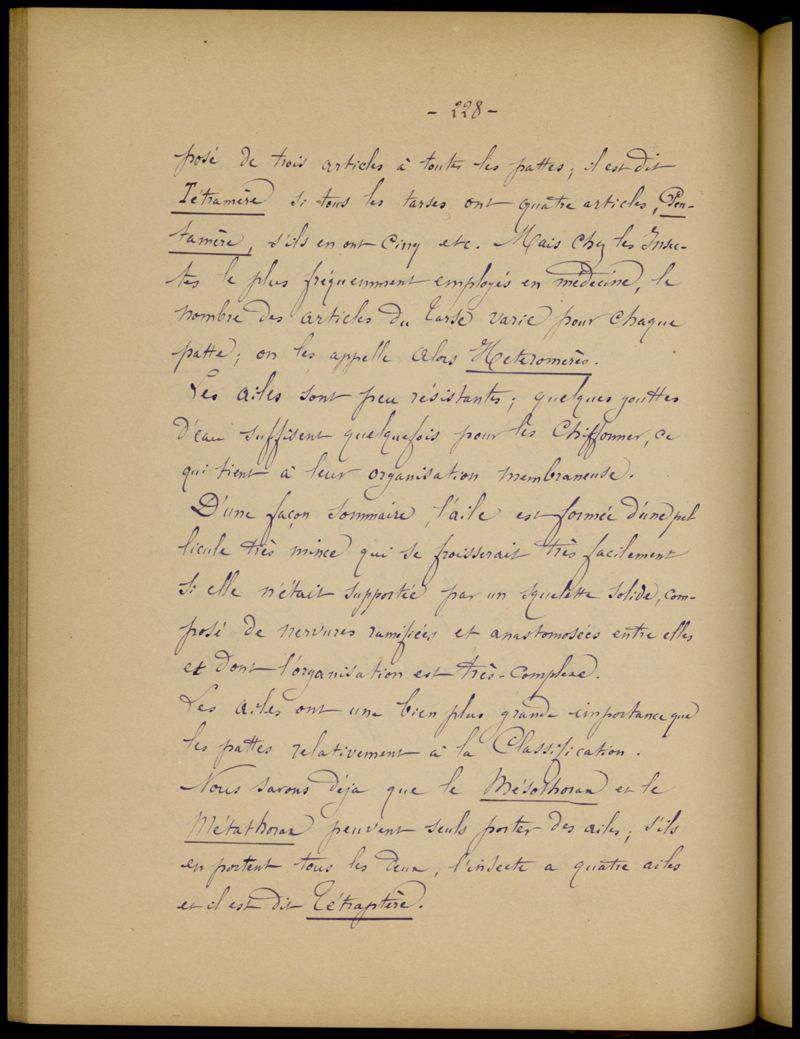 - 228 -
posé de trois articles à toutes les pattes ; il est dit
Tétramère si tous les tarses ont quatre articles, Pen-
tamère, s'ils en ont cinq etc. Mais chez les Insec-
tes le plus fréquemment employés en médecine, le
nombre des articles du tarse varie pour chaque
patte ; on les appelle alors Hétéromères.
Les ailes sont peu résistantes ; quelques gouttes
d'eau suffisent quelquefois pour les chiffonner, ce
qui tient à leur organisation membraneuse.
D'une façon sommaire, l'aile est formée d'une pel
licule très mince qui se froisserait très facilement
si elle n'était supportée par un squelette solide, com-
posé de nervures ramifiées et anastomosées entre elles
et dont l'organisation est très-complexe.
Les ailes ont une bien plus grande importance que
les pattes relativement à la Classification.
Nous savons déja que le Mésothorax et le
Métathorax peuvent seuls porter des ailes ; s'ils
en portent tous les deux, l'insecte a quatre ailes
et il est dit Tétraptère.